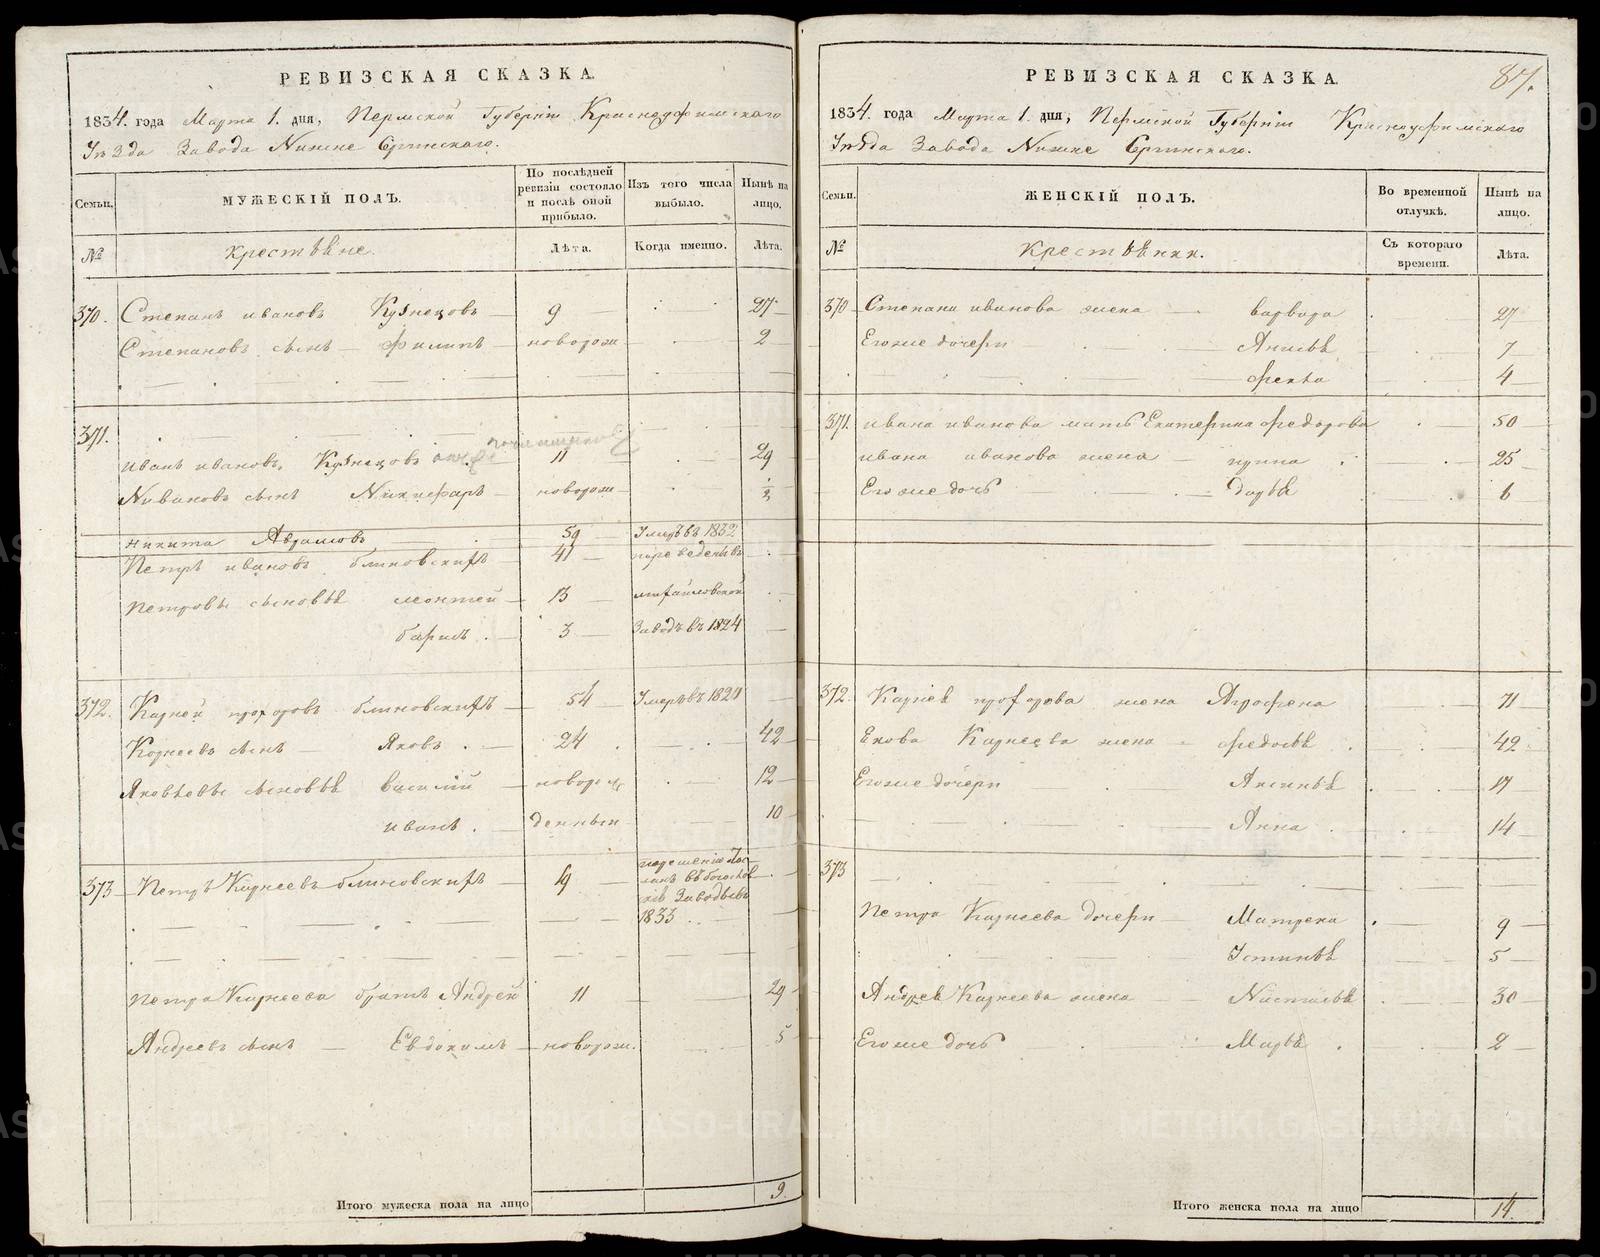 РЕВИЗСКАЯ СКАЗКА.
1834. года Марта 1. дня, Пермской Губернiи Красноуфимского
Уѣзда Завода Нижне Сергинскаго.
Семьи.
МУЖЕСКIЙ ПОЛЪ.
По послѣдней ревизiи состояло и послѣ оной прибыло.
Изъ того числа выбыло.
Нынѣ на лицо.
№
крестьяне.
Лѣта.
Когда именно.
Лѣта.
370. Степанъ ивановъ Кузнецовъ 9 27
Степановъ сынъ Филипъ новорож 2
371.
иванъ ивановъ Кузнецовъ 11 29
Ивановъ сынъ Никифаръ новорож ½
никита Аврамовъ 59 Умеръ въ 1832
Петръ ивановъ блиновскихъ 41 переведенъ въ
Петровы сыновья леонтей 13 михайловской
барисъ 3 Заводъ въ 1824
372. Карней прохоровъ блиновскихъ 54 Умеръ въ 1821
Корнеевъ сынъ Яковъ 24 42
Яковлевы сыновья василiй новорож 12
иванъ денныи 10
373 Петръ Карнеевъ блиновскихъ 19
Заводы въ
1833
Петра Карнеева братъ Андрей 11 29
Андреевъ сынъ Евдокимъ новорож. 5
Итого мужеска пола на лицо 9.
87.
РЕВИЗСКАЯ СКАЗКА.
1834. года Марта 1. дня, Пермской Губернiи Красноуфимского
Уѣзда Завода Нижне Сергинскаго.
Семьи.
ЖЕНСКIЙ ПОЛЪ.
Во временной отлучкѣ.
Нынѣ на лицо.
№
крестьянки.
Съ котораго времени.
Лѣта.
370 Степана иванова жена варвара 27
Егоже дочери Анисья 7
фекла 4
371. ивана иванова мать Екатерина федорова 50
ивана иванова жена 25
Егоже дочь дарья 6
372. Карнея прохорова жена Аграфена 71
Екова Карнеева жена федосья 42
Егоже дочери Аксинья 17
Анна 14
373
Петра Карнеева дочери Матрена 9
Устинья 5
Андрея Карнеева жена Настасья 30
Егоже дочь Марья 2
Итого женска пола на лицо 14.
METRIKI.GASO-URAL.RU